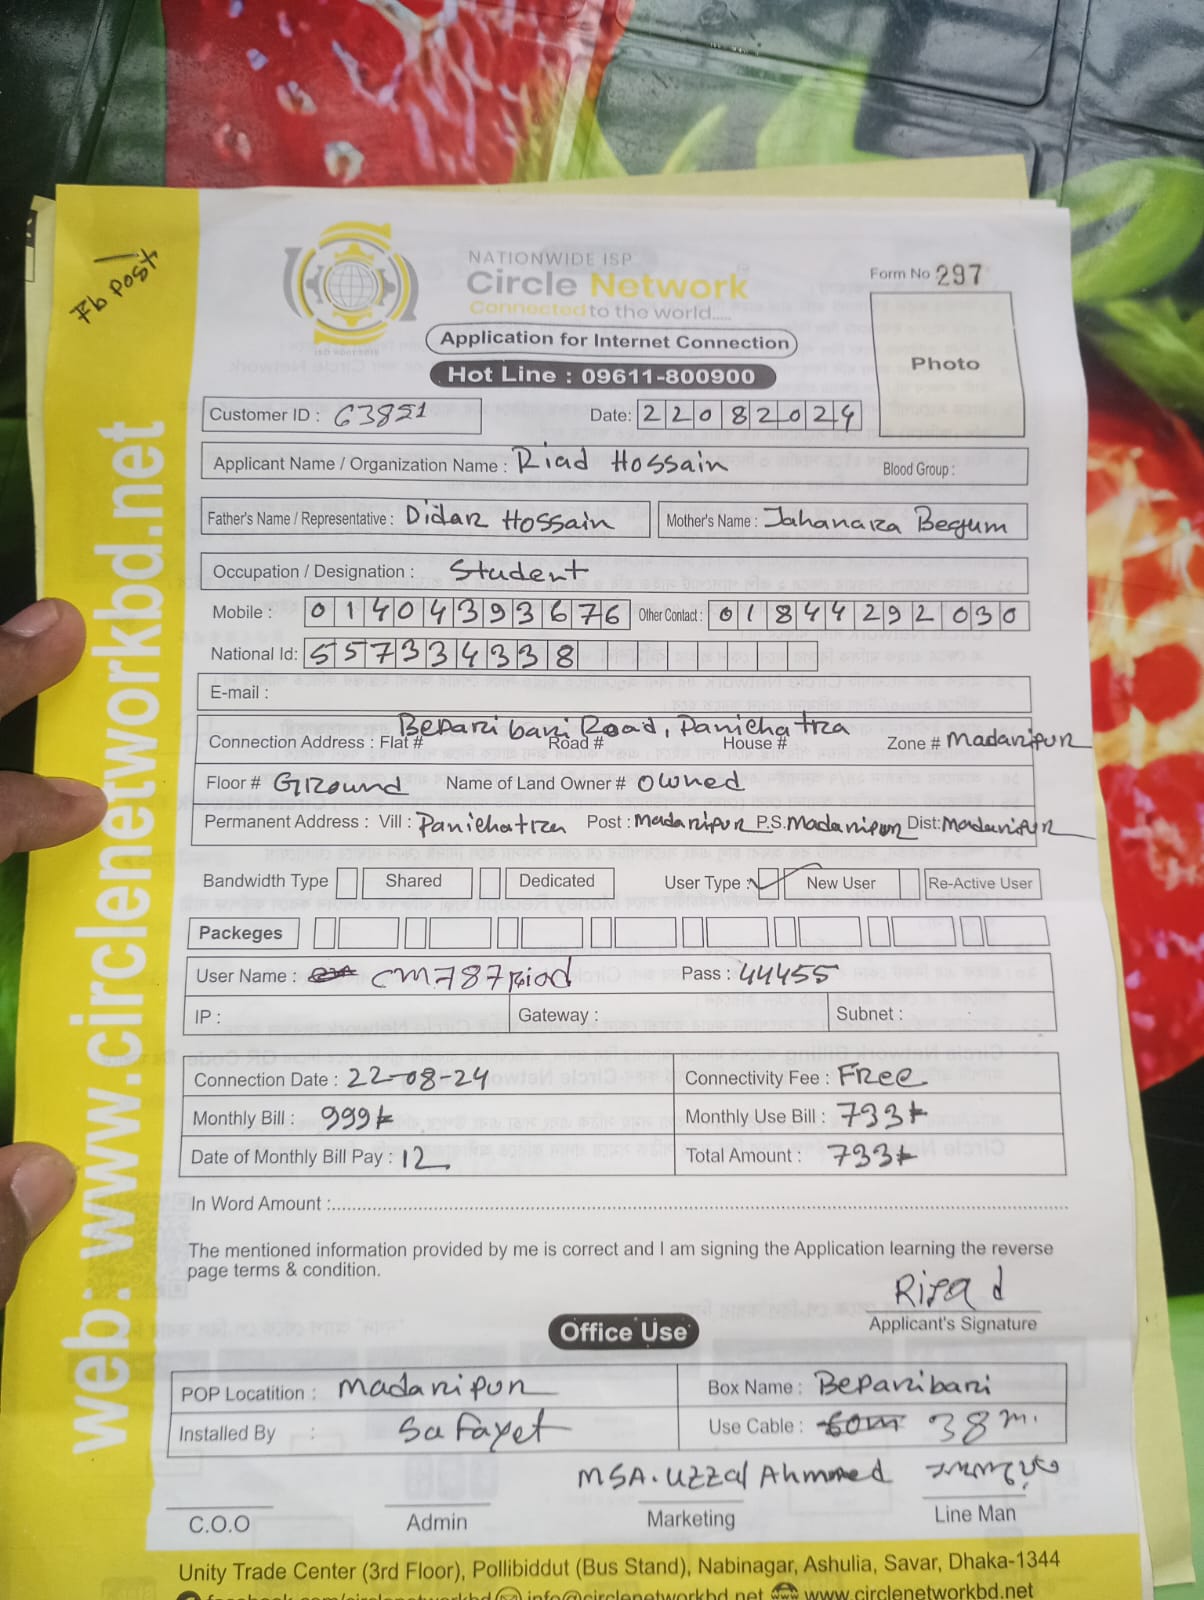 Fb post
NATIONWIDE ISP
Circle Network
Connected to the world.....
ISO 9001:2015
Form No 297
Application for Internet Connection
Photo
Hot Line : 09611-800900
Customer ID : 63851 Date: 22082024
Applicant Name / Organization Name : Riad Hossain Blood Group :
Father's Name / Representative : Didar Hossain Mother's Name : Jahanara Begum
Occupation / Designation : Student
Mobile : 01404393676 Other Contact : 01844292030
National Id: 5573343338
E-mail :
Beparibari Road, Panichatra
Connection Address : Flat # Road # House # Zone # Madaripur
Floor # Ground Name of Land Owner # owned
Permanent Address : Vill : Panichatra Post : Madaripur P.S. Madaripur Dist: Madaripur
Bandwidth Type Shared Dedicated User Type : New User Re-Active User
Packeges
User Name : CM787Riad Pass : 44455
IP : Gateway : Subnet :
Connection Date : 22-08-24 Connectivity Fee : Free
Monthly Bill : 999৳ Monthly Use Bill : 733৳
Date of Monthly Bill Pay : 12 Total Amount : 733৳
In Word Amount :
The mentioned information provided by me is correct and I am signing the Application learning the reverse
page terms & condition.
Riyad
Applicant's Signature
Office Use
POP Locatition : Madaripur Box Name : Beparibari
Installed By : Safayet Use Cable : 60m 38m.
MSA. Uzzal Ahmmed
C.O.O Admin Marketing Line Man
Unity Trade Center (3rd Floor), Pollibiddut (Bus Stand), Nabinagar, Ashulia, Savar, Dhaka-1344
facebook.com/circlenetworkbd info@circlenetworkbd.net www.circlenetworkbd.net
web: www.circlenetworkbd.net